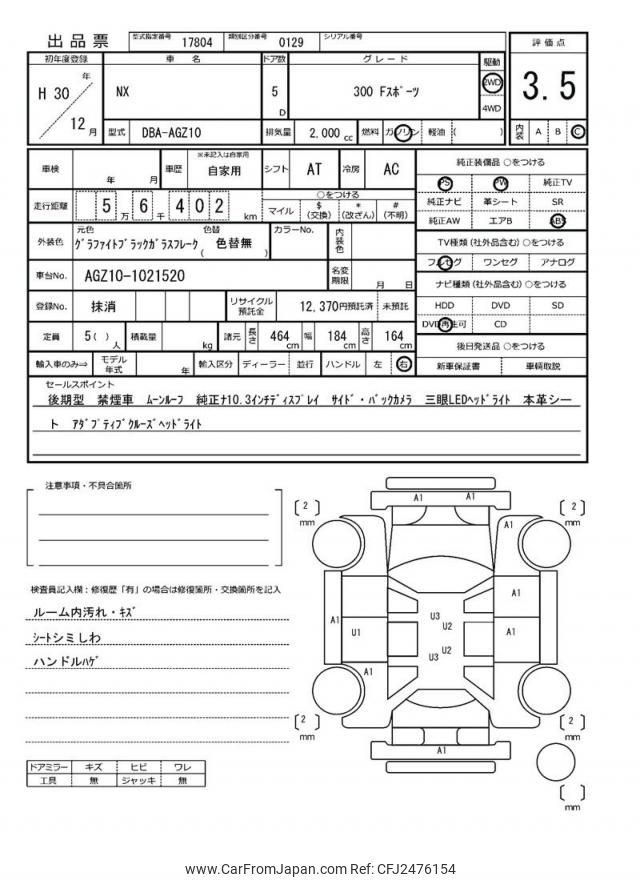 出品票
型式指定番号 17804 類別区分番号 0129 シリアル番号
評価点
3.5
内装 A B C
初年度登録 車名 ドア数 グレード 駆動
H 30 年 12 月
NX
5 D
300 Fスポーツ
2WD
4WD
型式 DBA-AGZ10 排気量 2,000 cc 燃料 ガソリン 軽油 ( )
車検 年 月 車歴 ※未記入は自家用 自家用 シフト AT 冷房 AC
走行距離 5万 6千 4 0 2 km
○をつける
マイル $(交換) *(改ざん) #(不明)
外装色 元色 グラファイトブラックガラスフレーク 色替 ( 色替無 ) カラーNo. 内装色
車台No. AGZ10-1021520 名変期限 月 日
登録No. 抹消 リサイクル預託金 12,370円預託済 未預託
定員 5( )人 積載量 kg 諸元 長さ 464 cm 幅 184 cm 高さ 164 cm
輸入車のみ⇒ モデル年式 年 輸入区分 ディーラー 並行 ハンドル 左 右
純正装備品 ○をつける
PS PW 純正TV
純正ナビ 革シート SR
純正AW エアB ABS
TV種類 (社外品含む) ○をつける
フルセグ ワンセグ アナログ
ナビ種類 (社外品含む) ○をつける
HDD DVD SD
DVD再生可 CD
後日発送品 ○をつける
新車保証書 車輌取説
セールスポイント
後期型 禁煙車 ムーンルーフ 純正ナ10.3インチディスプレイ サイド・バックカメラ 三眼LEDヘッドライト 本革シー
ト アダプティブクルーズヘッドライト
注意事項・不具合箇所
検査員記入欄：修復歴「有」の場合は修復箇所・交換箇所を記入
ルーム内汚れ・キズ
シートシミしわ
ハンドルハゲ
ドアミラー キズ ヒビ ワレ
工具 無 ジャッキ 無
[ 2 ] mm
A1 A1
[ 2 ] mm
A1
A1
A1
U3
U2
U1
A1
U2
U3
A1
[ 2 ] mm
A1
[ 2 ] mm
[ ] mm
www.CarFromJapan.com Ref: CFJ2476154